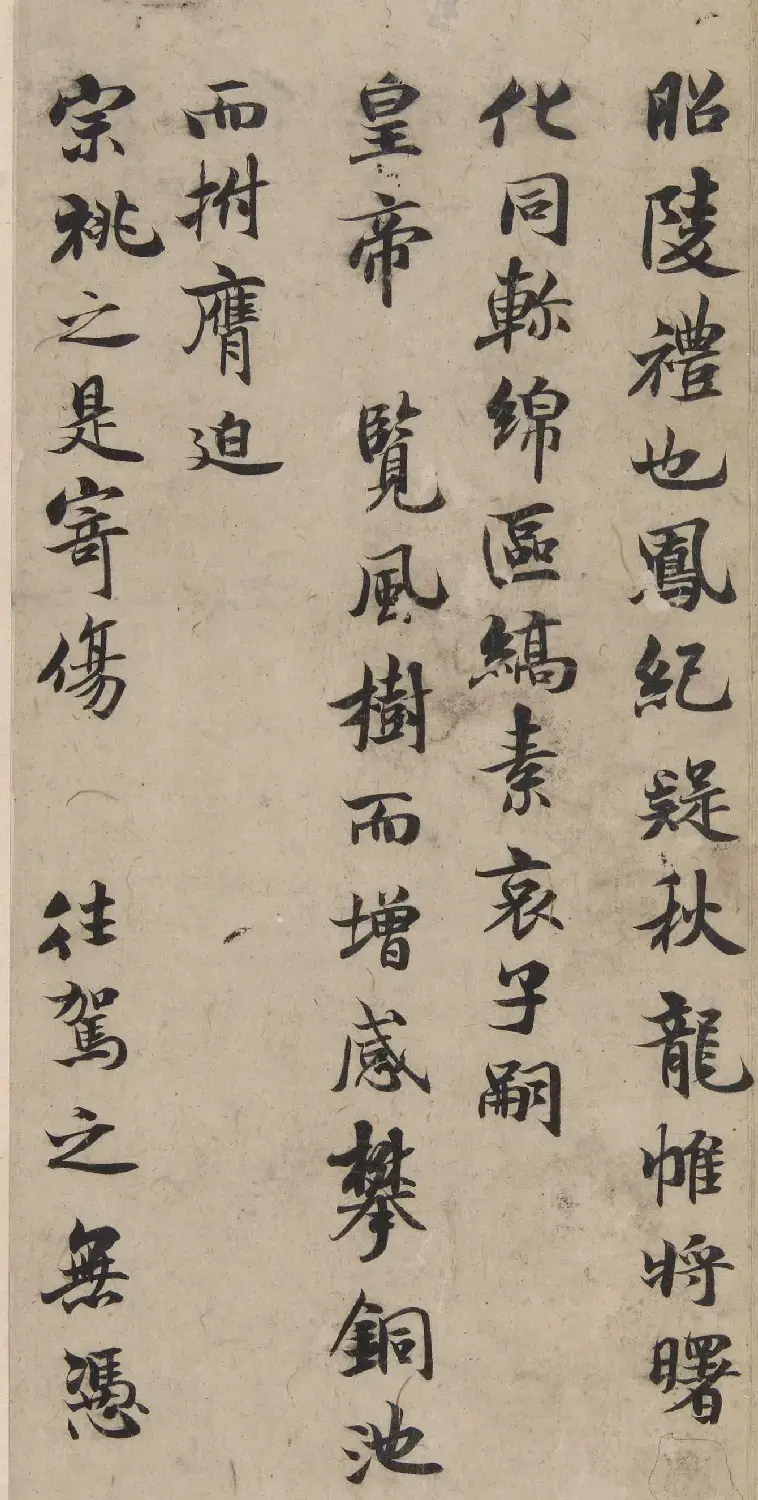 昭陵禮也鳳紀疑秋龍帷將曙
化同軫綿區縞素哀子嗣
皇帝 覽風樹而增感攀銅池
而拊膺迫
宗祧之是寄傷 往駕之無憑